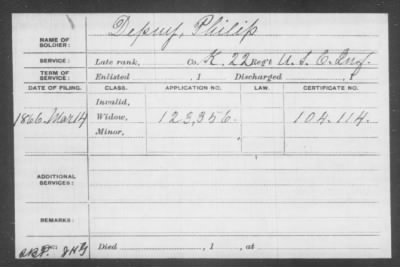 NAME OF SOLDIER: Depuy, Philip
SERVICE: Late rank, Co. K, 22 Reg't U. S. C. Inf.
TERM OF SERVICE: Enlisted , 1 Discharged , 1
DATE OF FILING. CLASS. APPLICATION NO. LAW. CERTIFICATE NO.
Invalid,
1866 Mar 14 Widow, 123,356. 104.114.
Minor,
ADDITIONAL SERVICES:
REMARKS:
Died , 1 , at